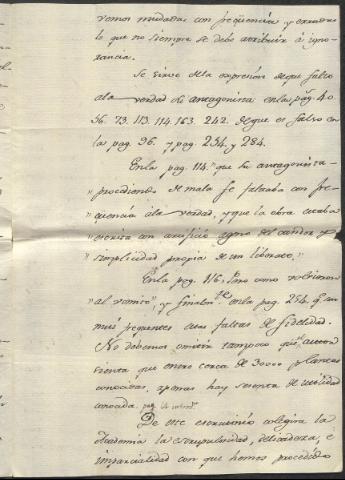 vemos mudadas con freqüencia, y errores
lo que no siempre se debe atribuir á igno-
rancia.
Se sirve de la expresion de que faltó
ála verdad su antagonista en las pag.s 40
56. 73. 113. 114. 163. 242. de que es falso en
las pag. 96. y pag. 234. y 284.
En la pag. 114. que su antagonista
" procediendo de mala fe faltaba con fre-
" quencia ála verdad, y que la obra estaba
" escrita con artificio ageno del candor y
" simplicidad propia de un literato."
En la pag. 116. como
" al vomito", y finalm.te en la pag. 254. q.e son
mui frequentes estas faltas de fidelidad.
No debemos omitir tampoco que
sienta que entre cerca de 30000 plantas
conocidas, apenas hay sesenta de utilidad
conocida. pag.
De este escrutinio colegirá la
Academia la escrupulosidad, delicadeza, e
imparcialidad con que hemos procedido